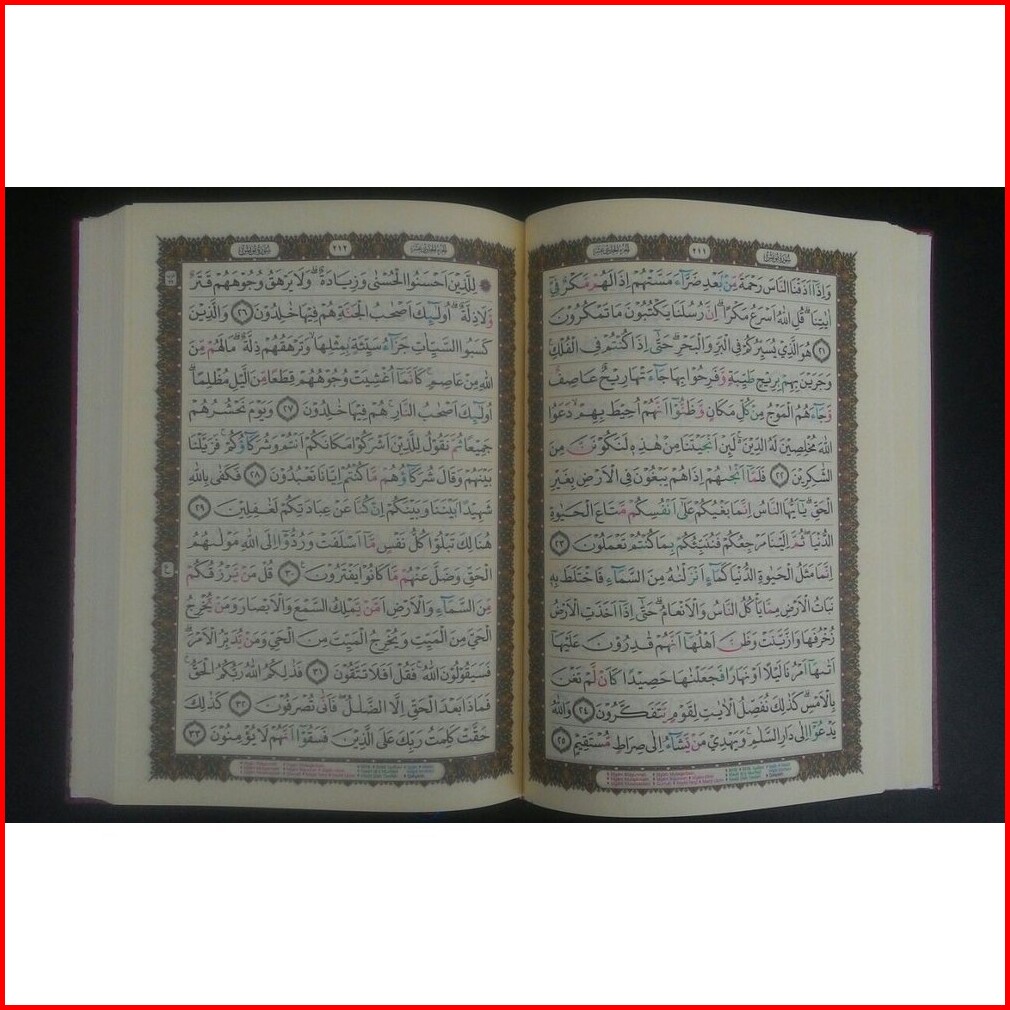 سورة يونس
٢١١
الجزء الحادي عشر
وَاِذَآ اَذَقْنَا النَّاسَ رَحْمَةً مِّنْۢ بَعْدِ ضَرَّاۤءَ مَسَّتْهُمْ اِذَا لَهُمْ مَّكْرٌ فِيْٓ
اٰيٰتِنَاۗ قُلِ اللّٰهُ اَسْرَعُ مَكْرًاۗ اِنَّ رُسُلَنَا يَكْتُبُوْنَ مَا تَمْكُرُوْنَ
٢١ هُوَ الَّذِيْ يُسَيِّرُكُمْ فِى الْبَرِّ وَالْبَحْرِۗ حَتّٰٓى اِذَا كُنْتُمْ فِى الْفُلْكِۚ
وَجَرَيْنَ بِهِمْ بِرِيْحٍ طَيِّبَةٍ وَّفَرِحُوْا بِهَا جَاۤءَتْهَا رِيْحٌ عَاصِفٌ
وَّجَاۤءَهُمُ الْمَوْجُ مِنْ كُلِّ مَكَانٍ وَّظَنُّوْٓا اَنَّهُمْ اُحِيْطَ بِهِمْۙ دَعَوُا
اللّٰهَ مُخْلِصِيْنَ لَهُ الدِّيْنَۚ لَىِٕنْ اَنْجَيْتَنَا مِنْ هٰذِهٖ لَنَكُوْنَنَّ مِنَ
الشّٰكِرِيْنَ ٢٢ فَلَمَّآ اَنْجٰىهُمْ اِذَا هُمْ يَبْغُوْنَ فِى الْاَرْضِ بِغَيْرِ
الْحَقِّۗ يٰٓاَيُّهَا النَّاسُ اِنَّمَا بَغْيُكُمْ عَلٰٓى اَنْفُسِكُمْ مَّتَاعَ الْحَيٰوةِ
الدُّنْيَاۖ ثُمَّ اِلَيْنَا مَرْجِعُكُمْ فَنُنَبِّئُكُمْ بِمَا كُنْتُمْ تَعْمَلُوْنَ ٢٣
اِنَّمَا مَثَلُ الْحَيٰوةِ الدُّنْيَا كَمَاۤءٍ اَنْزَلْنٰهُ مِنَ السَّمَاۤءِ فَاخْتَلَطَ بِهٖ
نَبَاتُ الْاَرْضِ مِمَّا يَأْكُلُ النَّاسُ وَالْاَنْعَامُۗ حَتّٰٓى اِذَآ اَخَذَتِ الْاَرْضُ
زُخْرُفَهَا وَازَّيَّنَتْ وَظَنَّ اَهْلُهَآ اَنَّهُمْ قٰدِرُوْنَ عَلَيْهَآ
اَتٰىهَآ اَمْرُنَا لَيْلًا اَوْ نَهَارًا فَجَعَلْنٰهَا حَصِيْدًا كَاَنْ لَّمْ تَغْنَ
بِالْاَمْسِۗ كَذٰلِكَ نُفَصِّلُ الْاٰيٰتِ لِقَوْمٍ يَّتَفَكَّرُوْنَ ٢٤ وَاللّٰهُ
يَدْعُوْٓا اِلٰى دَارِ السَّلٰمِۚ وَيَهْدِيْ مَنْ يَّشَاۤءُ اِلٰى صِرَاطٍ مُّسْتَقِيْمٍ ٢٥
الجزء الحادي عشر
٢١٢
سورة يونس
لِلَّذِيْنَ اَحْسَنُوا الْحُسْنٰى وَزِيَادَةٌۗ وَلَا يَرْهَقُ وُجُوْهَهُمْ قَتَرٌ
وَّلَا ذِلَّةٌۗ اُولٰۤىِٕكَ اَصْحٰبُ الْجَنَّةِۚ هُمْ فِيْهَا خٰلِدُوْنَ ٢٦ وَالَّذِيْنَ
كَسَبُوا السَّيِّاٰتِ جَزَاۤءُ سَيِّئَةٍۢ بِمِثْلِهَاۙ وَتَرْهَقُهُمْ ذِلَّةٌۗ مَا لَهُمْ مِّنَ
اللّٰهِ مِنْ عَاصِمٍۚ كَاَنَّمَآ اُغْشِيَتْ وُجُوْهُهُمْ قِطَعًا مِّنَ الَّيْلِ مُظْلِمًاۗ
اُولٰۤىِٕكَ اَصْحٰبُ النَّارِۚ هُمْ فِيْهَا خٰلِدُوْنَ ٢٧ وَيَوْمَ نَحْشُرُهُمْ
جَمِيْعًا ثُمَّ نَقُوْلُ لِلَّذِيْنَ اَشْرَكُوْا مَكَانَكُمْ اَنْتُمْ وَشُرَكَاۤؤُكُمْۚ فَزَيَّلْنَا
بَيْنَهُمْ وَقَالَ شُرَكَاۤؤُهُمْ مَّا كُنْتُمْ اِيَّانَا تَعْبُدُوْنَ ٢٨ فَكَفٰى بِاللّٰهِ
شَهِيْدًاۢ بَيْنَنَا وَبَيْنَكُمْ اِنْ كُنَّا عَنْ عِبَادَتِكُمْ لَغٰفِلِيْنَ ٢٩
هُنَالِكَ تَبْلُوْا كُلُّ نَفْسٍ مَّآ اَسْلَفَتْ وَرُدُّوْٓا اِلَى اللّٰهِ مَوْلٰىهُمُ
الْحَقِّ وَضَلَّ عَنْهُمْ مَّا كَانُوْا يَفْتَرُوْنَ ٣٠ قُلْ مَنْ يَّرْزُقُكُمْ
مِّنَ السَّمَاۤءِ وَالْاَرْضِ اَمَّنْ يَّمْلِكُ السَّمْعَ وَالْاَبْصَارَ وَمَنْ يُّخْرِجُ
الْحَيَّ مِنَ الْمَيِّتِ وَيُخْرِجُ الْمَيِّتَ مِنَ الْحَيِّ وَمَنْ يُّدَبِّرُ الْاَمْرَۗ
فَسَيَقُوْلُوْنَ اللّٰهُۚ فَقُلْ اَفَلَا تَتَّقُوْنَ ٣١ فَذٰلِكُمُ اللّٰهُ رَبُّكُمُ الْحَقُّۚ
فَمَاذَا بَعْدَ الْحَقِّ اِلَّا الضَّلٰلُۖ فَاَنّٰى تُصْرَفُوْنَ ٣٢ كَذٰلِكَ
حَقَّتْ كَلِمَتُ رَبِّكَ عَلَى الَّذِيْنَ فَسَقُوْٓا اَنَّهُمْ لَا يُؤْمِنُوْنَ ٣٣